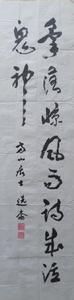 筆落惊風雨詩成泣
鬼神
山居士